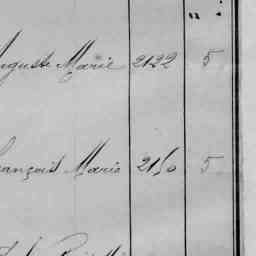 Auguste Marie 2122 5
François Marie 2150 5